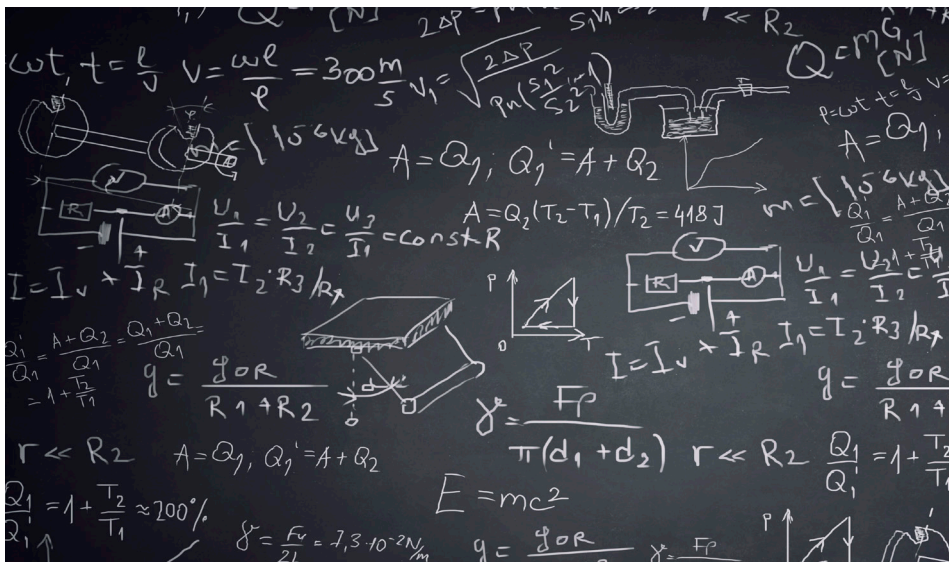 Q = [N]
2ΔP
S1V1
r << R2
Q = mG [N]
ωt, t = l/J v = ωl/φ = 300 m/s v1 = √(2ΔP / ρn(S1²/S2²
p = ωt t = l/J v =
= [10⁻⁶ kg]
A = Q1; Q1' = A + Q2
A = Q1;
A = Q2(T2-T1)/T2 = 418J
m = [10⁻⁶ kg]
V
R A
- +
U1/I1 = U2/I2 = U3/I1 = const R
Q1'/Q1 = A+Q2/Q1
1 + T2/T1
V
R A
- +
U1/I1 = U2/I2 =
I = Iv + IR I1 = I2·R3/R4
P
0 T
I = Iv + IR I1 = I2·R3/R4
Q1'/Q1 = A+Q2/Q1 = Q1+Q2/Q1 =
= 1 + T2/T1
d
g = goR / R1+R2
γ = Fp / π(d1 + d2)
g = goR / R1+
r << R2 A = Q1, Q1' = A + Q2
r << R2 Q1/Q1' = 1 + T2/T1
E = mc²
Q1/Q1' = 1 + T2/T1 ≈ 200%
γ = Fv/2l = 7,3·10⁻² N/m
g = goR
γ = Fp
P